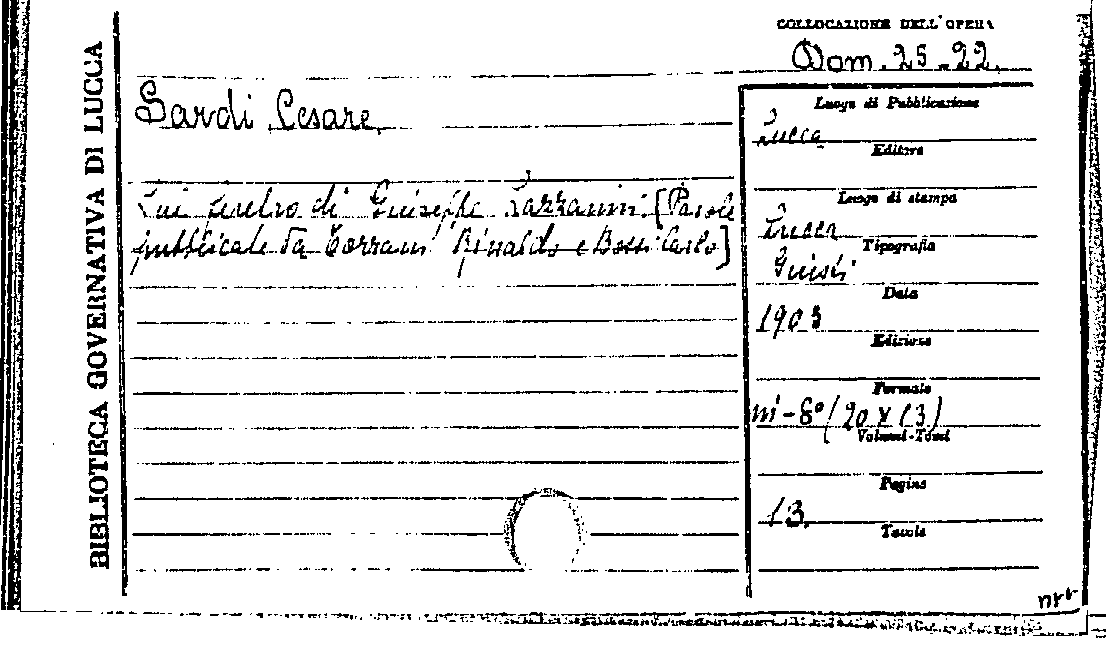 BIBLIOTECA GOVERNATIVA DI LUCCA
COLLOCAZIONE DELL'OPERA
Dom. 25.22.
Sardi Cesare.
Sul feretro di Giuseppe Lazzarini. [Parole
pubblicate da Torrani Rinaldo e Bossi Carlo]
Luogo di Pubblicazione
Lucca
Editore
Luogo di stampa
Lucca
Tipografia
Giusti
Data
1903
Edizione
Formato
in-8° (20 x 13)
Volumi-Tomi
Pagine
13.
Tavole